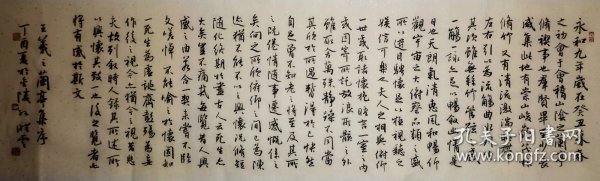 永和九年歲在癸丑暮春
之初會于會稽山陰之蘭亭
修禊事也群賢畢至少長
咸集此地有崇山峻領茂林
修竹又有清流激湍映帶
左右引以為流觴曲水列坐
其次雖無絲竹管弦之盛
一觴一詠亦足以暢敘幽情是
日也天朗氣清惠風和暢仰
觀宇宙之大俯察品類之盛
所以遊目騁懷足以極視聽之
娛信可樂也夫人之相與俯仰
一世或取諸懷抱晤言一室之內
或因寄所託放浪形骸之外
雖趣舍萬殊靜躁不同當
其欣於所遇暫得於己快然
自足曾不知老之將至及其所
之既倦情隨事遷感慨係之
矣向之所欣俯仰之間已為陳
迹猶不能不以之興懷況脩短
隨化終期於盡古人云死生亦
大矣豈不痛哉每覽昔人興
感之由若合一契未嘗不臨
文嗟悼不能喻之於懷固知
一死生為虛誕齊彭殤為妄
作後之視今亦猶今之視昔悲
夫故列敘時人錄其所述所
以興懷其致一也後之覽者亦
將有感於斯文
王羲之蘭亭集序
丁酉夏於金陵
孔夫子旧书网